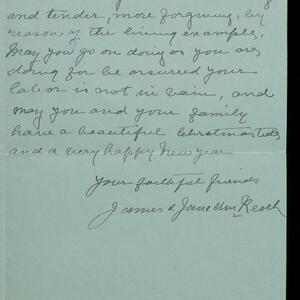 and tender, more forgiving, by
reason of the living example,
May you go on doing as you are
doing for be assured your
labor is not in vain, and
may you and your family
have a beautiful Christmastide
and a very happy New Year
Your faithful friends
James & Jane